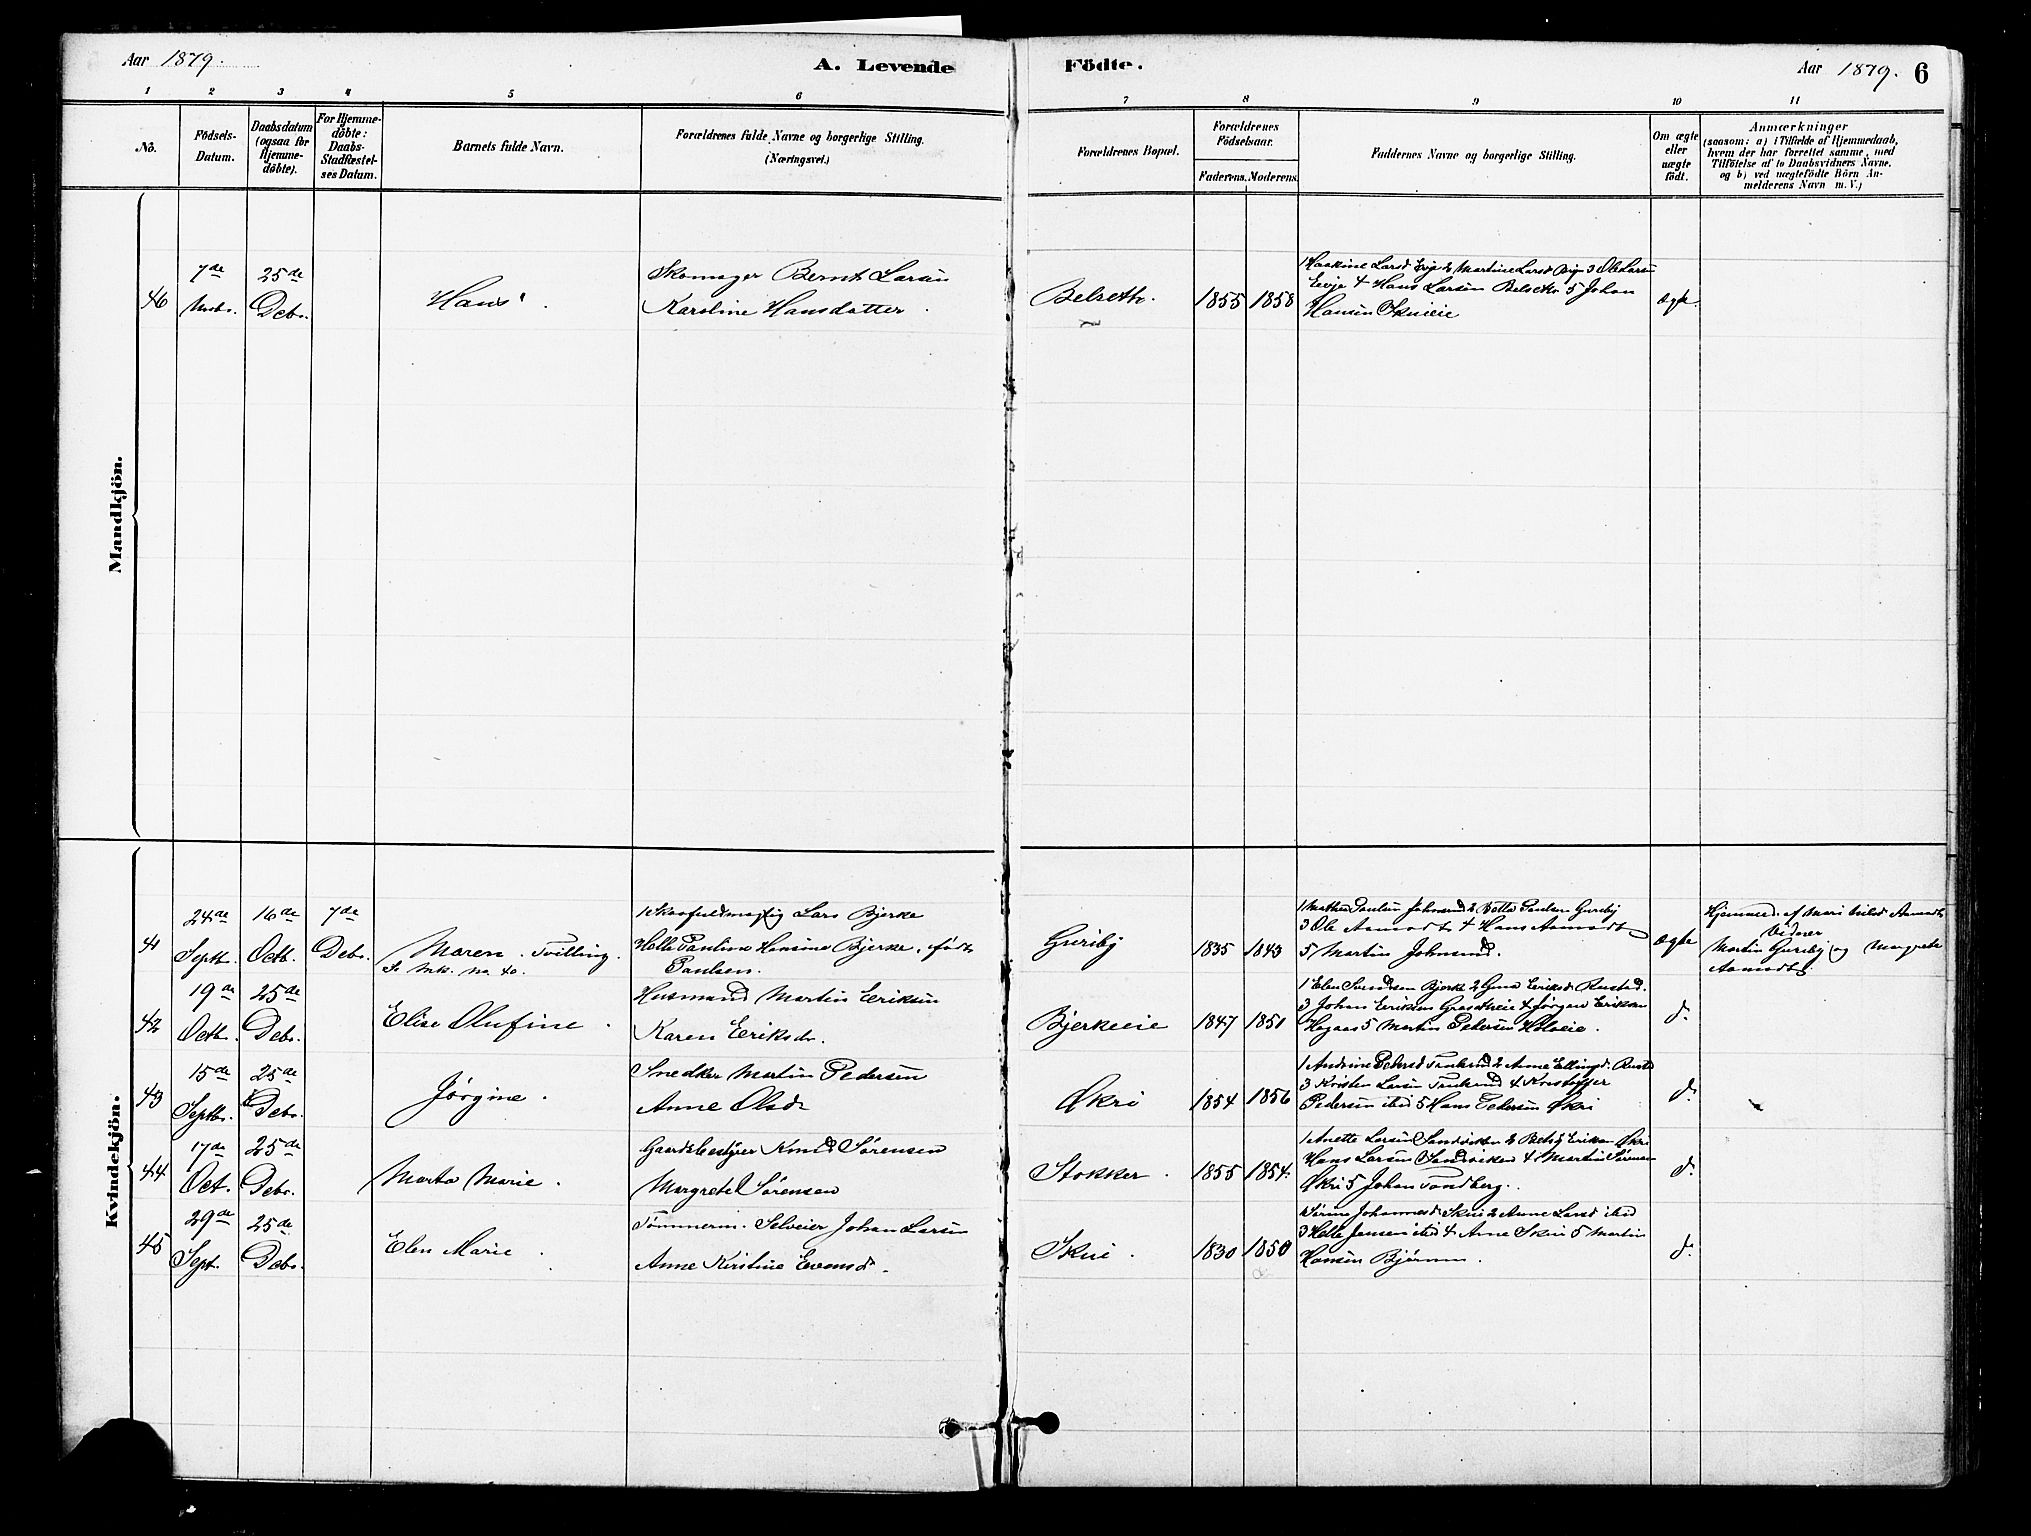 Aar 1879.
A. Levende Födte.
Aar 1879. 6
1 2 3 4 5 6 7 8 9 10 11
No.
Födsels-Datum.
Daabsdatum (ogsaa for Hjemmedöbte).
For Hjemmedöbte: Daabs-Stadfæstelses Datum.
Barnets fulde Navn.
Forældrenes fulde Navne og borgerlige Stilling.
(Næringsvei.)
Forældrenes Bopæl.
Forældrenes Födselsaar.
Faderens. Moderens.
Faddernes Navne og borgerlige Stilling.
Om ægte eller uægte födt.
Anmærkninger
(saasom: a) i Tilfælde af Hjemmedaab,
hvem der har forrettet samme, med
Tilföielse af to Daabsvidners Navne,
og b) ved uægtefödte Börn An-
melderens Navn m. V.)
Mandkjön.
46
7de
25de Debr.
Hans
Skomager Bernt Larsen
Karoline Hansdatter
Belseth.
1855 1858
Martine Larsd 3 Ole Larsen
4 Hans Larsen Belseth 5 Johan
Hansen Skuieie
ægte.
Kvindekjön.
41
24de Septb.
16de Octb.
7de Debr.
Maren. Tvilling.
Lars Bjerke
Helle Pauline Hansine Bjerke, født
Paulsen.
Guriby
1835 1843
3 Ole Aamodt 4 Hans Aamodt
5 Martin Johnsrud.
ægte
Hjemmed. af Mari Aamodt
Vidner
Martin Guriby og Margrete
Aamodt
42
19de Octb.
25de Debr.
Elise Olufine
Husmand Martin Eriksen
Karen Eriksdr.
Bjerkeeie
1847 1851
1 Elen Svendsen Bjerke 2 Eriksd. Rustad.
3 Johan Eriksen 4 Jørgen Eriksen
Hagaas 5 Martin Pedersen
d.
43
15de Septb.
25de Debr.
Jørgine.
Snedker Martin Pedersen
Anne Olsdr
Økri
1854 1856
1 Andrine Pedersd Tanlunrud 2 Anne Ellingsd.
3 Kristen Larsen 4 Kristoffer
Pedersen ibid 5 Hans Pedersen Økri
d.
44
17de Oct.
25de Debr.
Marta Marie.
Gaardsbestyrer Knud Sørensen
Margrete Sørensen
Stokker.
1855 1854.
1 Anette Larsen Sandviken 2 Betsy Eriksen Økri
Hans Larsen Sandviken 4 Martin Sørensen
Økri 5 Johan Tandberg.
d.
45
29de Sept.
25de Debr.
Elen Marie
Tømmerm. Selveier Johan Larsen
Anne Kirstine Evensd.
Skui.
1830 1850
Johannesd. Skui 2 Anne Larsd ibid
3 Helle Jensen ibid 4 Arne Skui 5 Martin
Hansen Bjørnum.
d.